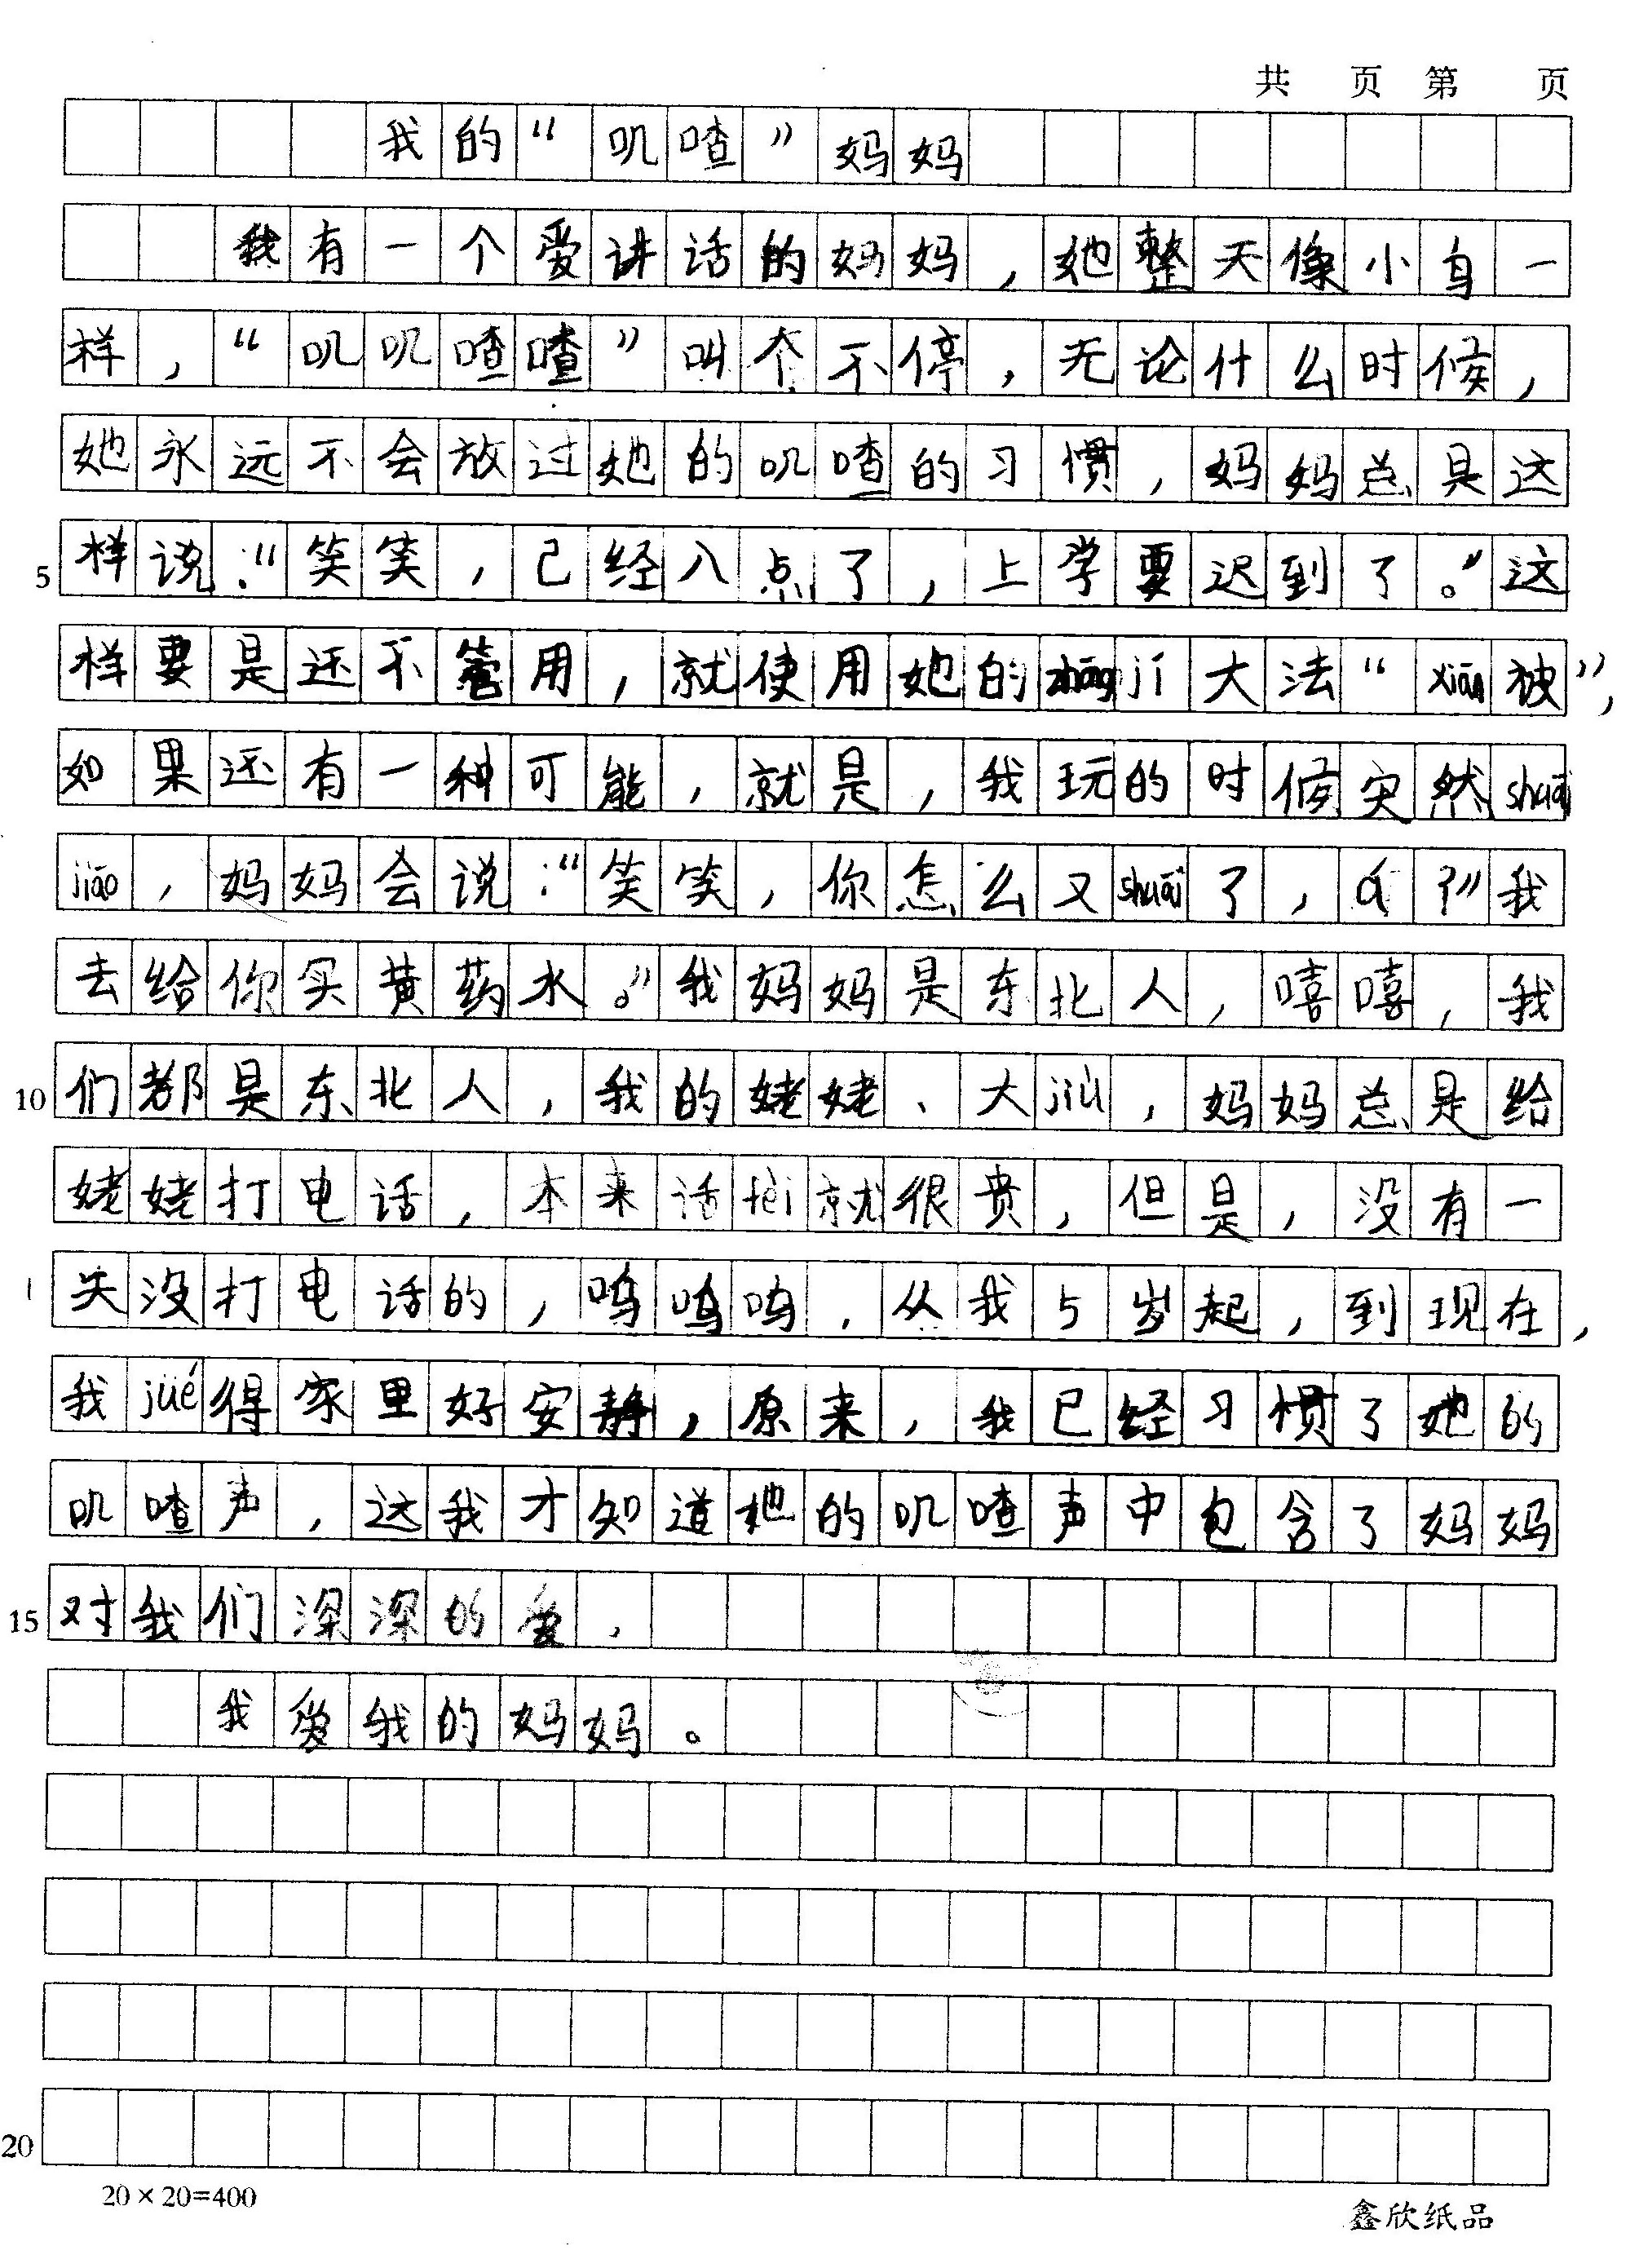 共 页 第 页
我的“叽喳”妈妈
我有一个爱讲话的妈妈，她整天像小鸟一
样，“叽叽喳喳”叫个不停，无论什么时候，
她永远不会放过她的叽喳的习惯，妈妈总是这
5 样说：“笑笑，已经八点了，上学要迟到了。”这
样要是还不管用，就使用她的zhāo jí大法“xiān被”，
如果还有一种可能，就是，我玩的时候突然shuāi
jiāo，妈妈会说：“笑笑，你怎么又shuāi了，á？”我
去给你买黄药水。”我妈妈是东北人，嘻嘻，我
10 们都是东北人，我的姥姥、大jiù，妈妈总是给
姥姥打电话，本来话fèi就很贵，但是，没有一
天没打电话的，呜呜呜，从我5岁起，到现在，
我jué得家里好安静，原来，我已经习惯了她的
叽喳声，这我才知道她的叽喳声中包含了妈妈
15 对我们深深的爱，
我爱我的妈妈。
20
20×20=400
鑫欣纸品